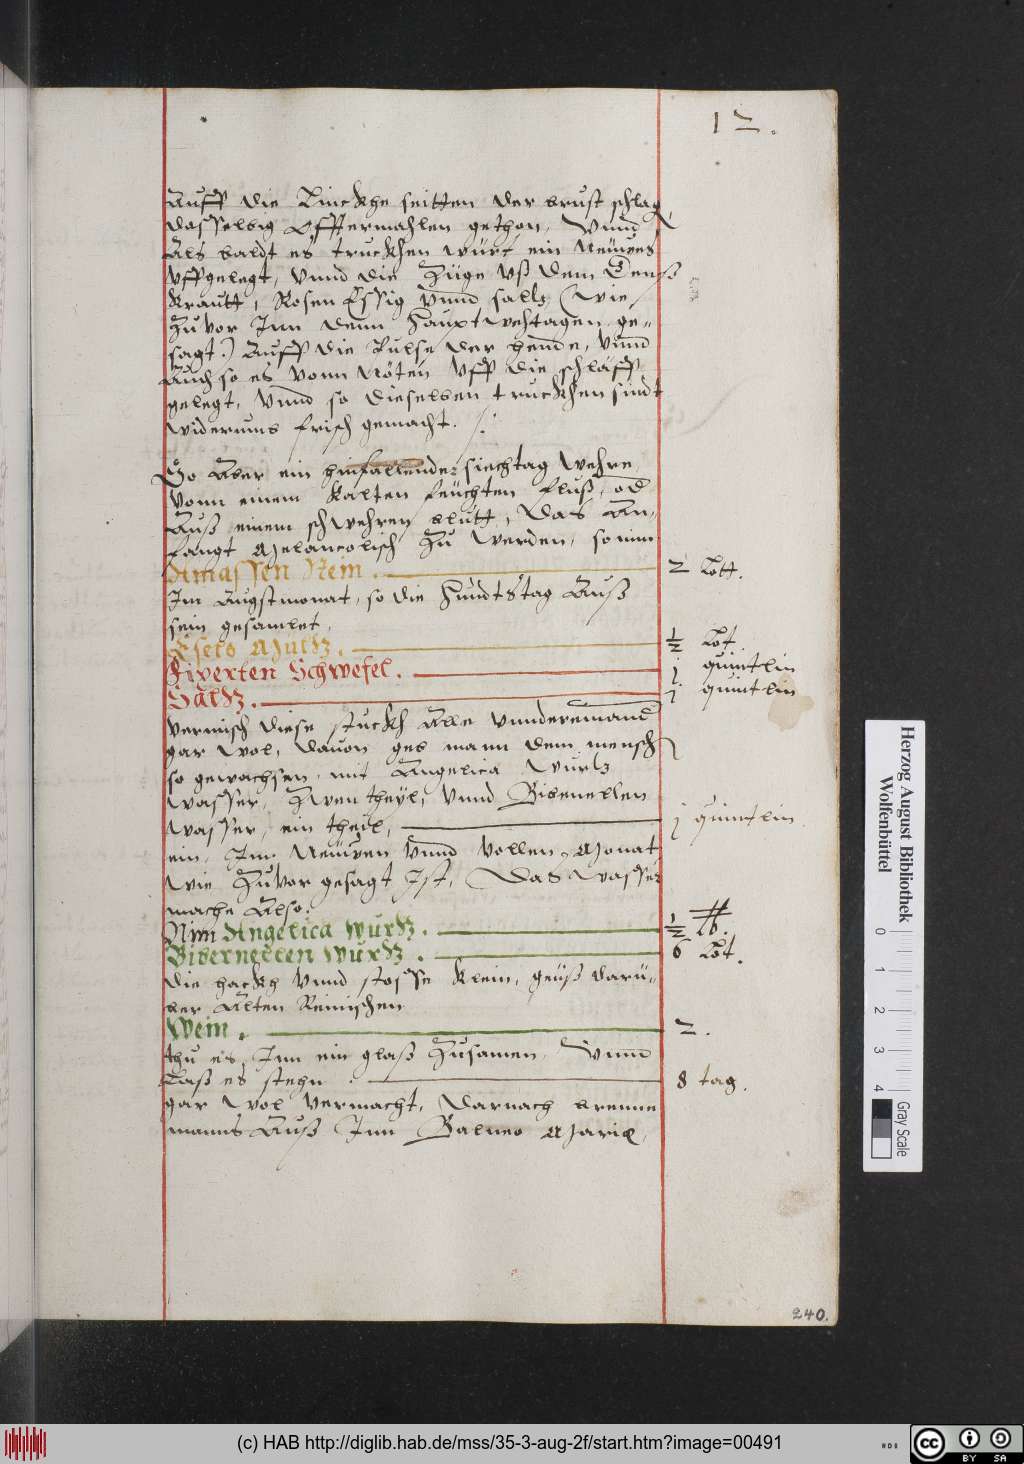 12.
Auff die Linckhe seitten der brust schlag,
dasselbig Offtermahlen gethon, Vnnd
Als baldt es truckhen würt ein Neüwes
vffgelegt, vnnd die Züge vß dem
Krautt, Rosen Essig vnnd saltz (wie
Zuvor Inn denn Hauptwehtagen ge-
sagt.) Auff die Pulse der hende, vnnd
Auch so es vonn Nöten vff die schläff
gelegt, Vnnd so dieselben truckhen sindt
widerumb frisch gemacht.
So Aber ein hinfallender siechtag wehre
Vonn einem Kalten feüchten fluß, od
Auß einem schwehren blutt, Das An-
fangt Melancolisch Zu werden, so nim
Amassen . 2 Lott.
Im Augstmonat, so die Hundtstag Auß
sein gesamlet.
Esels Miltz. ½ Lot.
Schwefel. j quintlin
Saltz. j quintlin
vermisch diese stuckh Alle vnnderemand
gar wol, dauon geb mann dem mensch
so gewachsen, mit Angelica wurtz
wasser, Zwen theyl, vnnd Bibenellen
wasser, ein theil, j quintlin
ein, Im Neüwen vnnd vollen Monat
wie Zuvor gesagt Ist, Das wasser
mache Also.
Nim Angelica wurtz. ½ lb.
Bibernellen wurtz. 6 Lot.
die hackh vnnd stosse klein, geüß darü-
ber Alten Reinischen
Wein. 2.
thu es Inn ein glaß Zusamen, Vnnd
Laß es stehn 8 tag.
gar wol vermacht, Darnach brenne
manns Auß Inn Balneo Mariæ,
240.
Herzog August Bibliothek
Wolfenbüttel
0 1 2 3 4
Gray Scale
(c) HAB http://diglib.hab.de/mss/35-3-aug-2f/start.htm?image=00491
cc BY SA